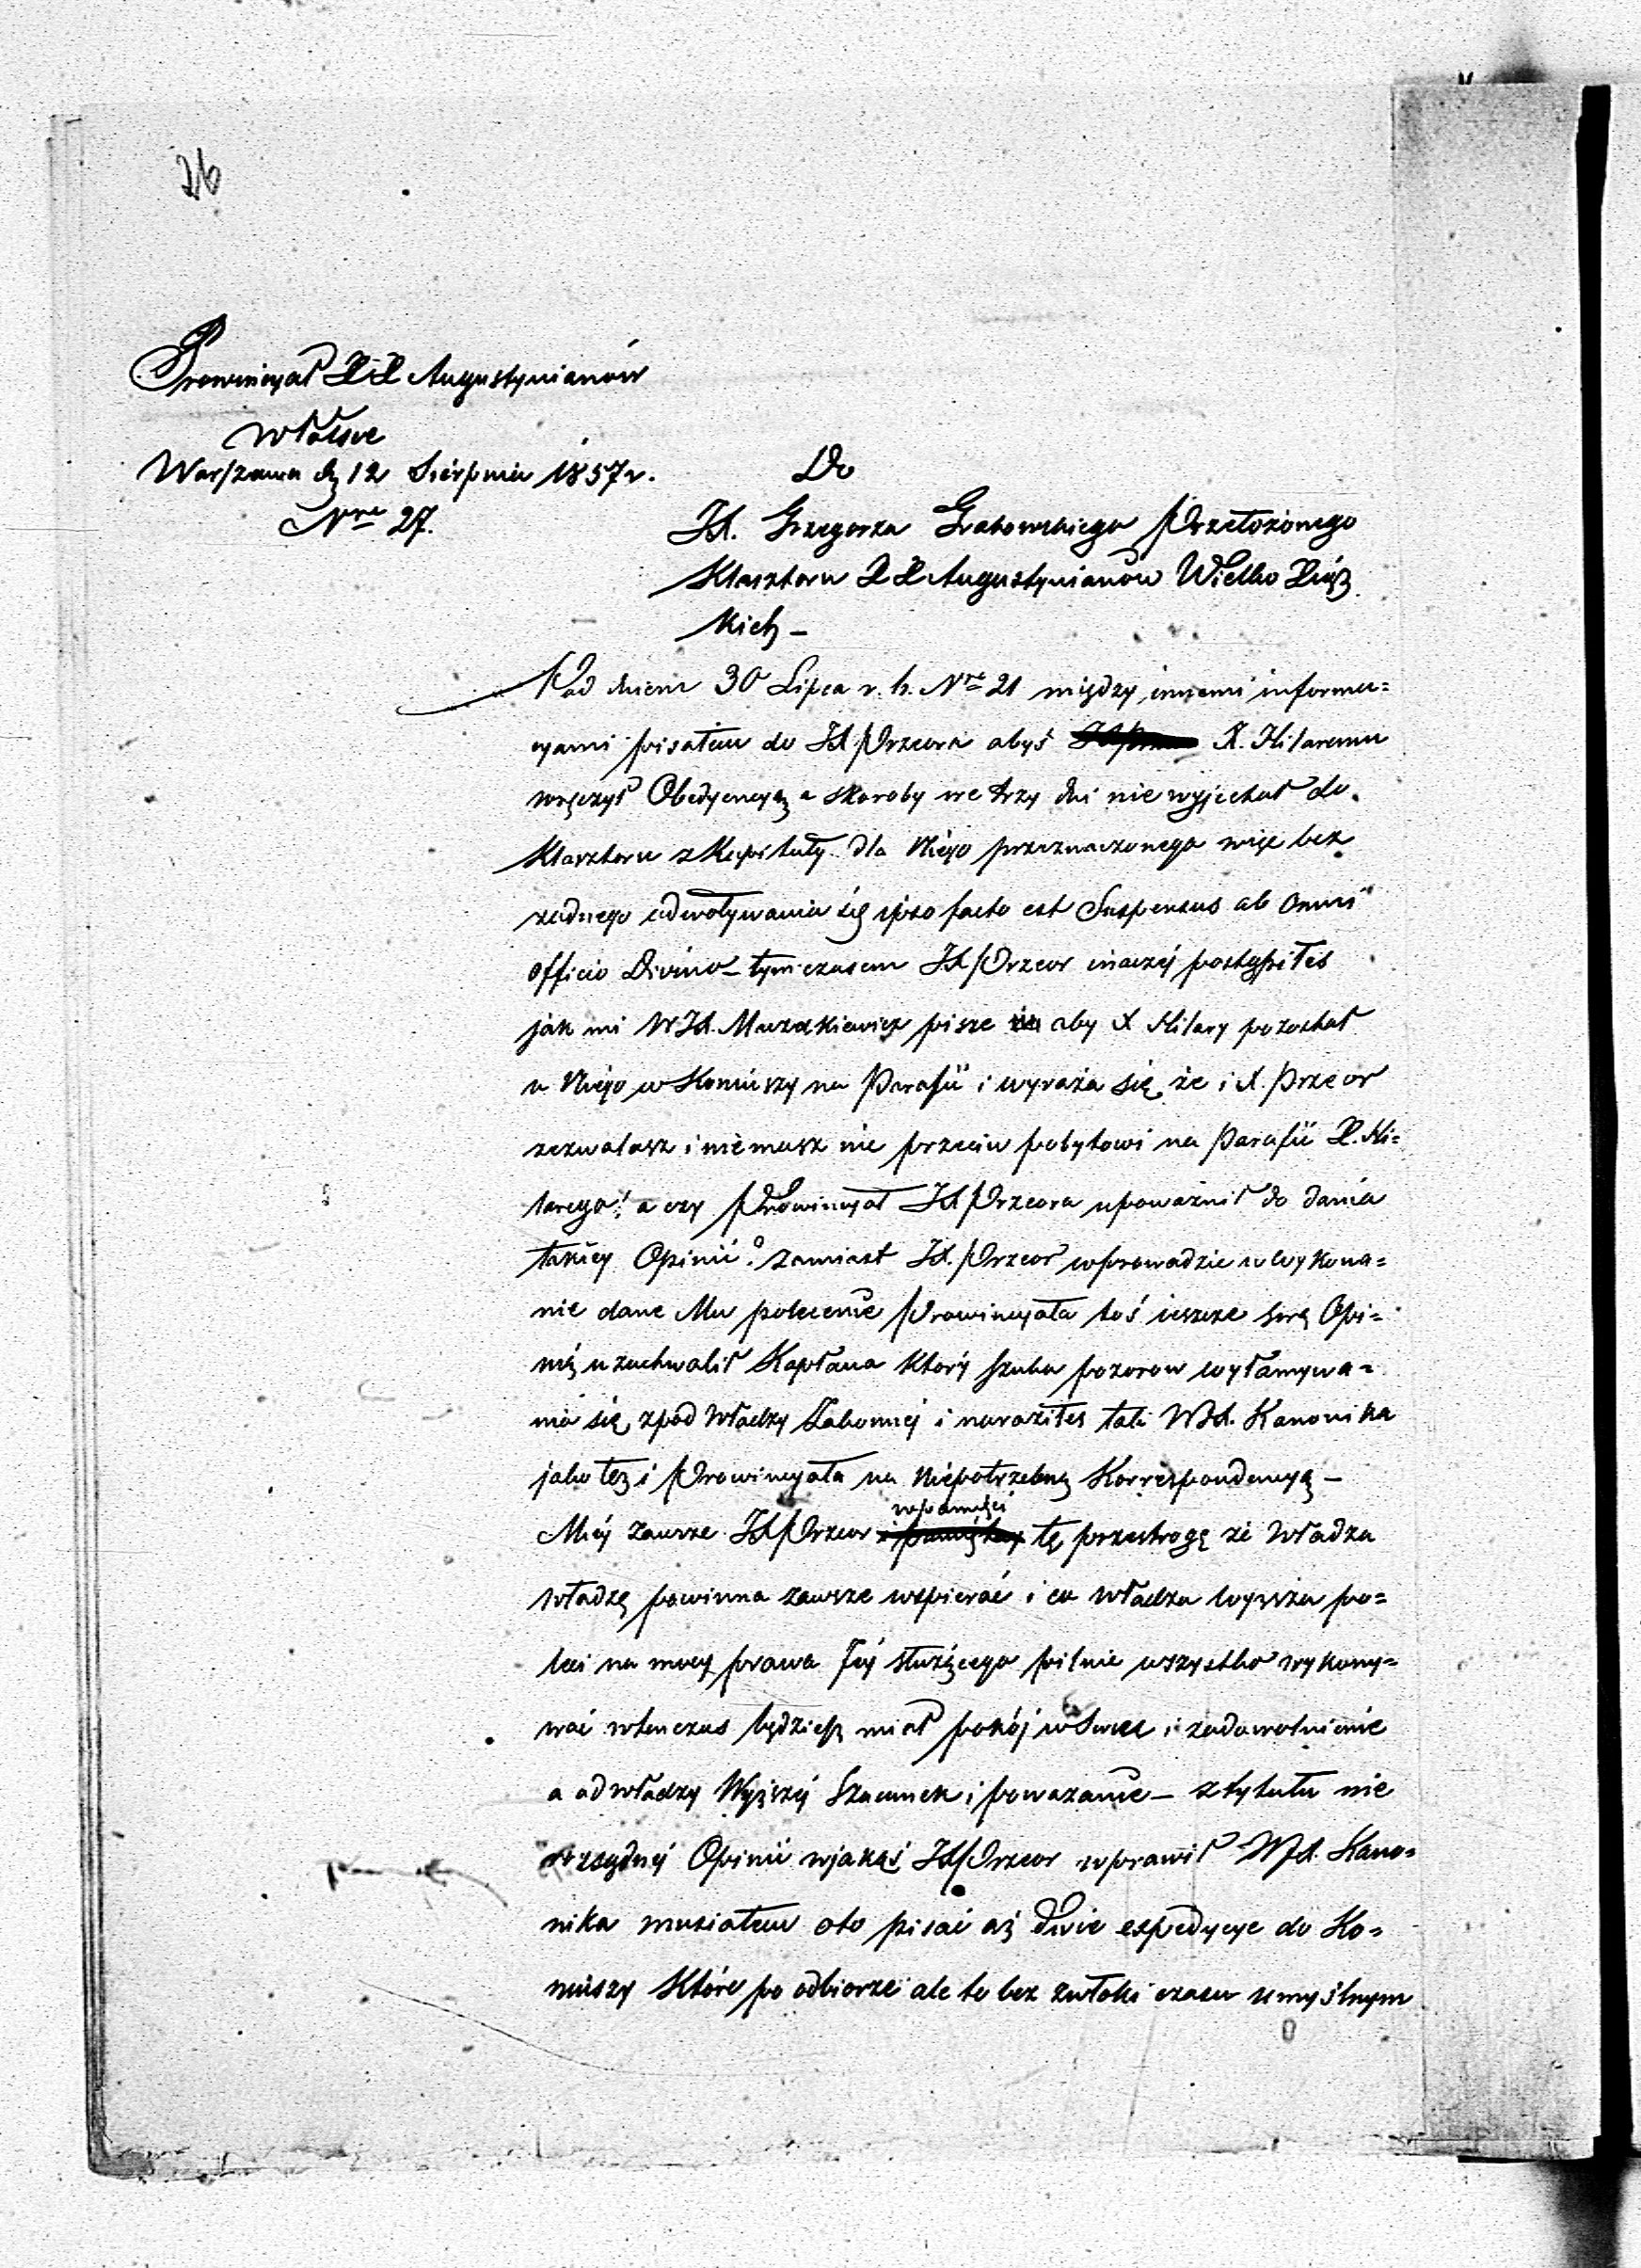 26
Prowincyał XX Augustynianów
w Polsce
Warszawa d. 12 Sierpnia 1857 r.
Nro 27.
Do
JX. Grzegorza Grabowskiego Przełożonego
Klasztoru XX Augustynianów Wielko Xiąż
kich –
Pod dniem 30 Lipca r. b. Nro 21 między innemi informa=
cyami pisałem do JX Przeora abyś X. Hilaremu
wręczył Obedyencyą a skoroby we trzy dni nie wyjechał do
Klasztoru z Kapituły dla Niego przeznaczonego więc bez
żadnego odwoływania się ipso facto est Suspensus ab Omni
officio Divino – tymczasem JX Przeor inaczéj postąpiłeś
jak mi WJX. pisze aby X Hilary pozostał
u Niego w Koniuszy na Parafii i wyraża się że i X. Przeor
zezwalasz i niemasz nic przeciw pobytowi na Parafii X. Hi=
larego! a czy Prowincyał JX Przeora upoważnił do dania
takiey Opinii? zamiast JX. Przeor wprowadzić w wykona=
nie dane Mu polecenie Prowincyała toś ieszcze swą Opi=
nią uzuchwalił Kapłana który szuka pozorow wyłamywa=
nia się zpod Władzy Zakonnéj i naraziłeś tak WJX. Kanonika
jako też i Prowincyała na Niepotrzebną Korrespondencyą –
Miéj zawsze JX Przeor w pamięci tę przestrogę że Władza
Władzę powinna zawsze wspierać i co Władza wyższa po=
leci na mocy prawa Jéj służącego pilnie wszystko wykony=
wać wtenczas będziesz miał pokój w sercu i zadowolnienie
a od Władzy Wyższéj Szacunek i poważanie – z tytułu nie
rozsądnéj Opinii w jakąś JX Przeor wprawił WJX. Kano=
nika musiałem oto pisać aż dwie expedycye do Ko=
niuszy które po odbiorze ale to bez zwłoki czasu umyślnym